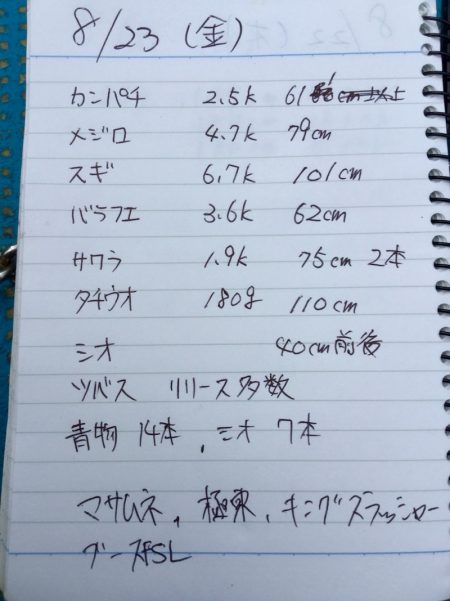 8/23 (金)
カンパチ 2.5k 61
メジロ 4.7k 79cm
スギ 6.7k 101cm
バラフエ 3.6k 62cm
サワラ 1.9k 75cm 2本
タチウオ 180g 110cm
シオ 40cm前後
ツバス リリース多数
青物 14本, シオ 7本
マサムネ, 極東, キングスラッシャー
グースSL